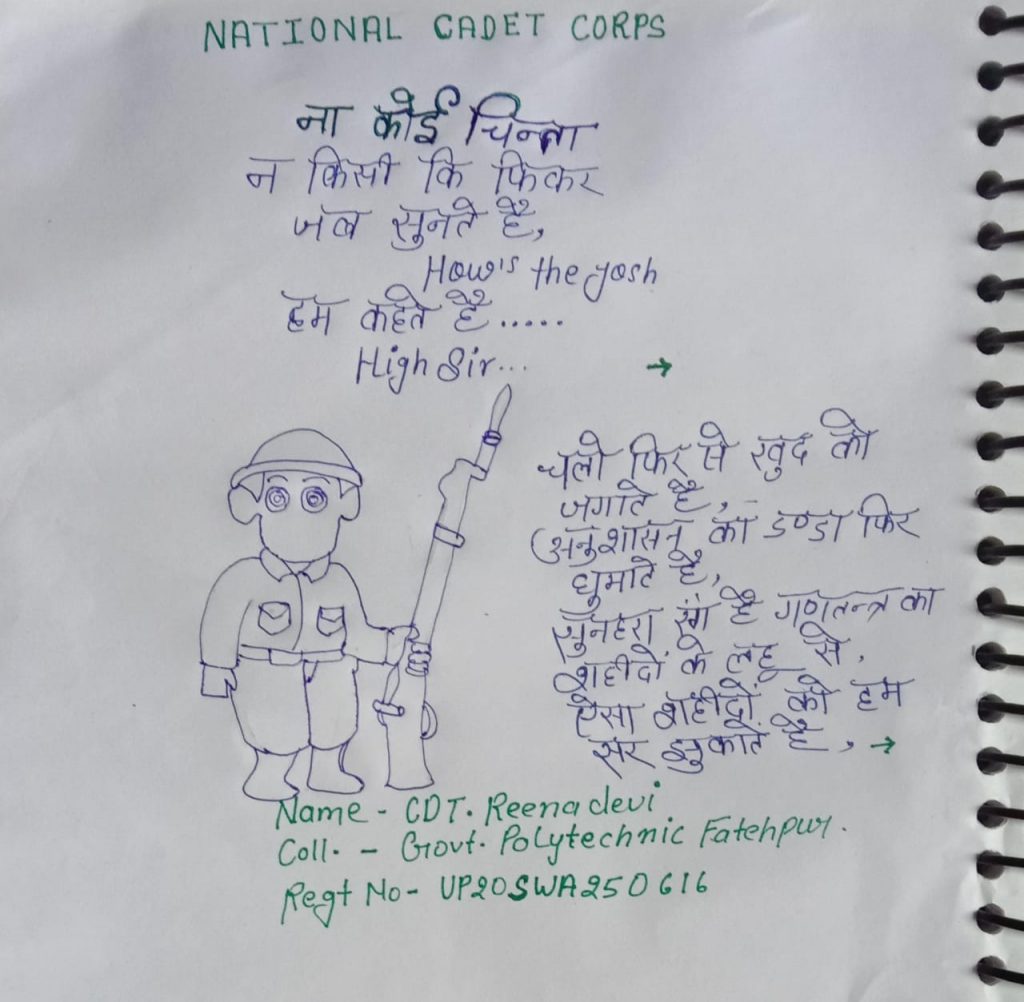 NATIONAL CADET CORPS
ना कोई चिन्ता
न किसी कि फिकर
जब सुनते है,
How's the josh
हम कहते है.....
High Sir...
चलो फिर से खुद को
जगाते है,
अनुशासन का डण्डा फिर
घुमाते है,
सुनहरा रंग है गणतन्त्र का
शहीदों के लहू से,
ऐसा शहीदों को हम
सर झुकाते है,
Name - CDT. Reena devi
Coll. - Govt. Polytechnic Fatehpur.
Regt No- UP20SWA250616